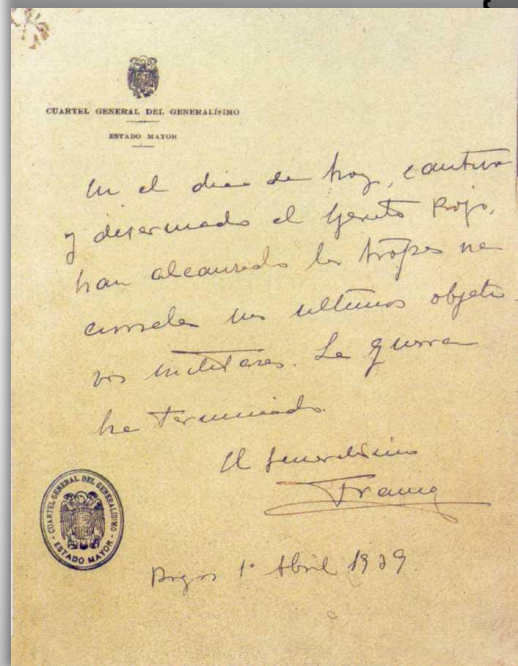 CUARTEL GENERAL DEL GENERALÍSIMO
ESTADO MAYOR
En el dia de hoy, cautivo
y desarmado el Ejercito Rojo,
han alcanzado las tropas na
cionales sus ultimos objeti
vos militares. La guerra
ha terminado.
El Generalísimo
Franco
Burgos 1º Abril 1939.
CUARTEL GENERAL DEL GENERALISIMO
ESTADO MAYOR